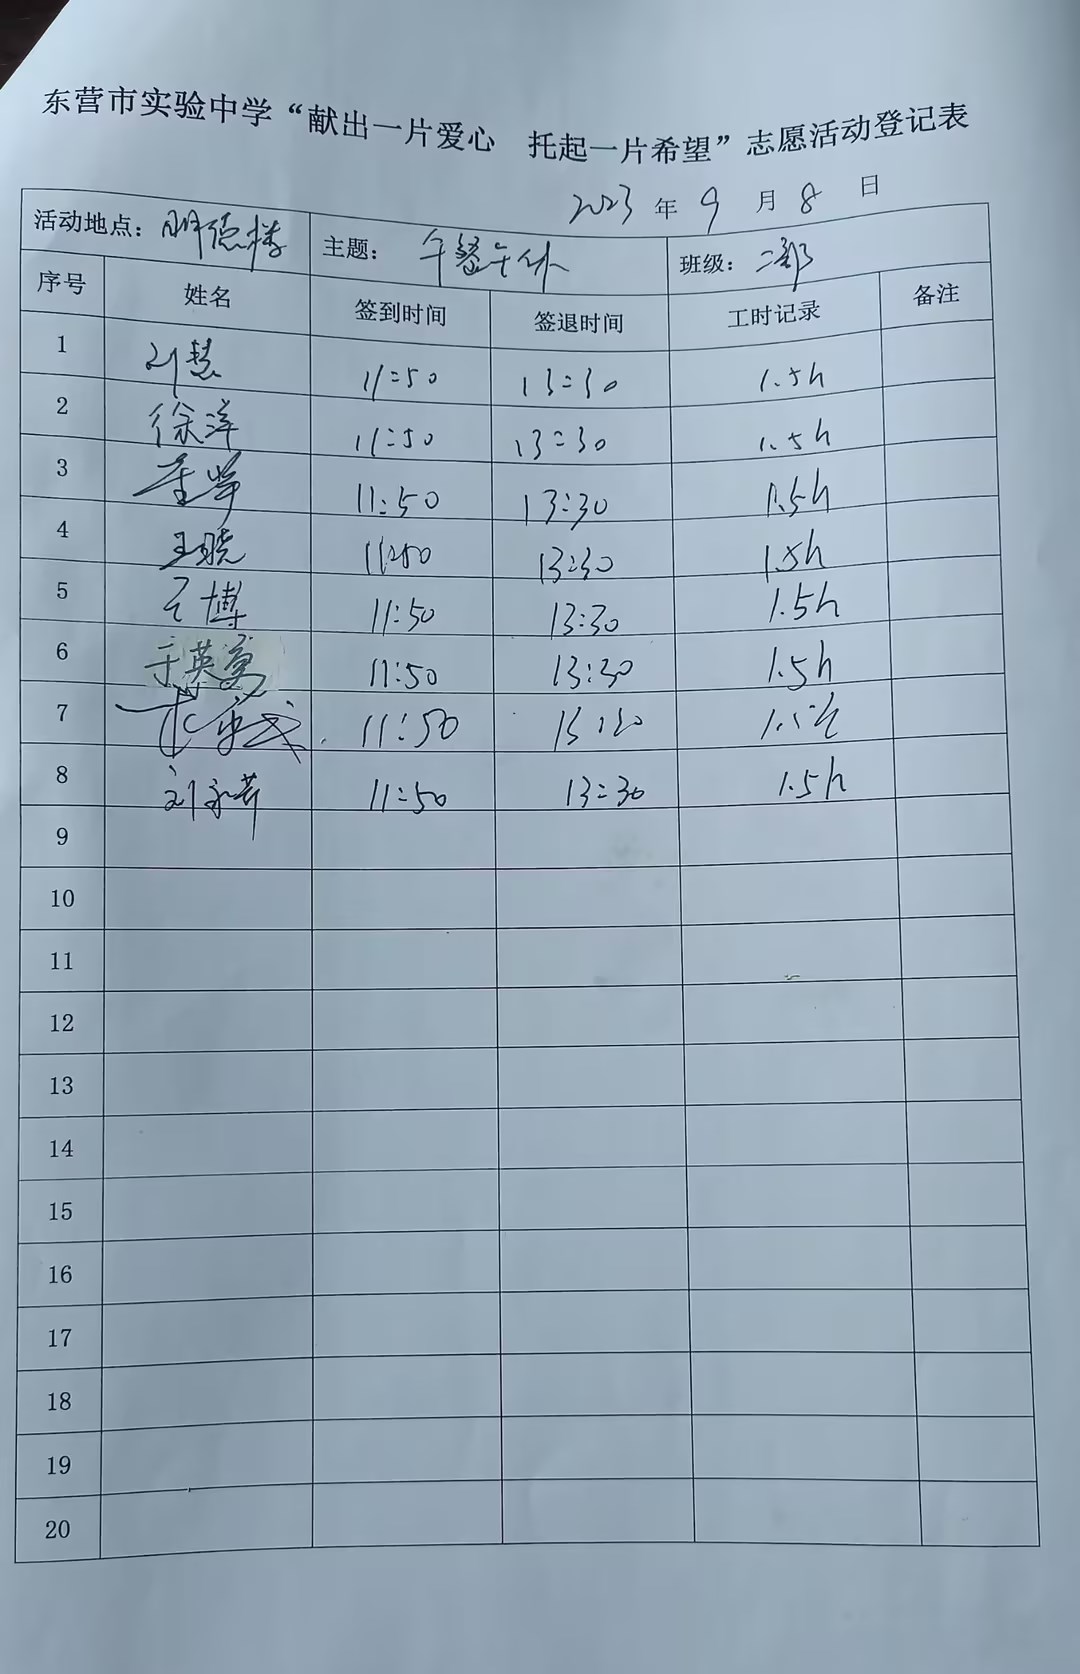 东营市实验中学“献出一片爱心 托起一片希望”志愿活动登记表
2023 年 9 月 8 日
活动地点：明德楼 主题：午餐午休 班级：二部
序号 姓名 签到时间 签退时间 工时记录 备注
1 刘慧 11:50 13:30 1.5h
2 徐萍 11:50 13:30 1.5h
3 11:50 13:30 1.5h
4 王晓 11:50 13:30 1.5h
5 王博 11:50 13:30 1.5h
6 于英勇 11:50 13:30 1.5h
7 11:50 13:30
8 刘永芹 11:50 13:30 1.5h
9
10
11
12
13
14
15
16
17
18
19
20